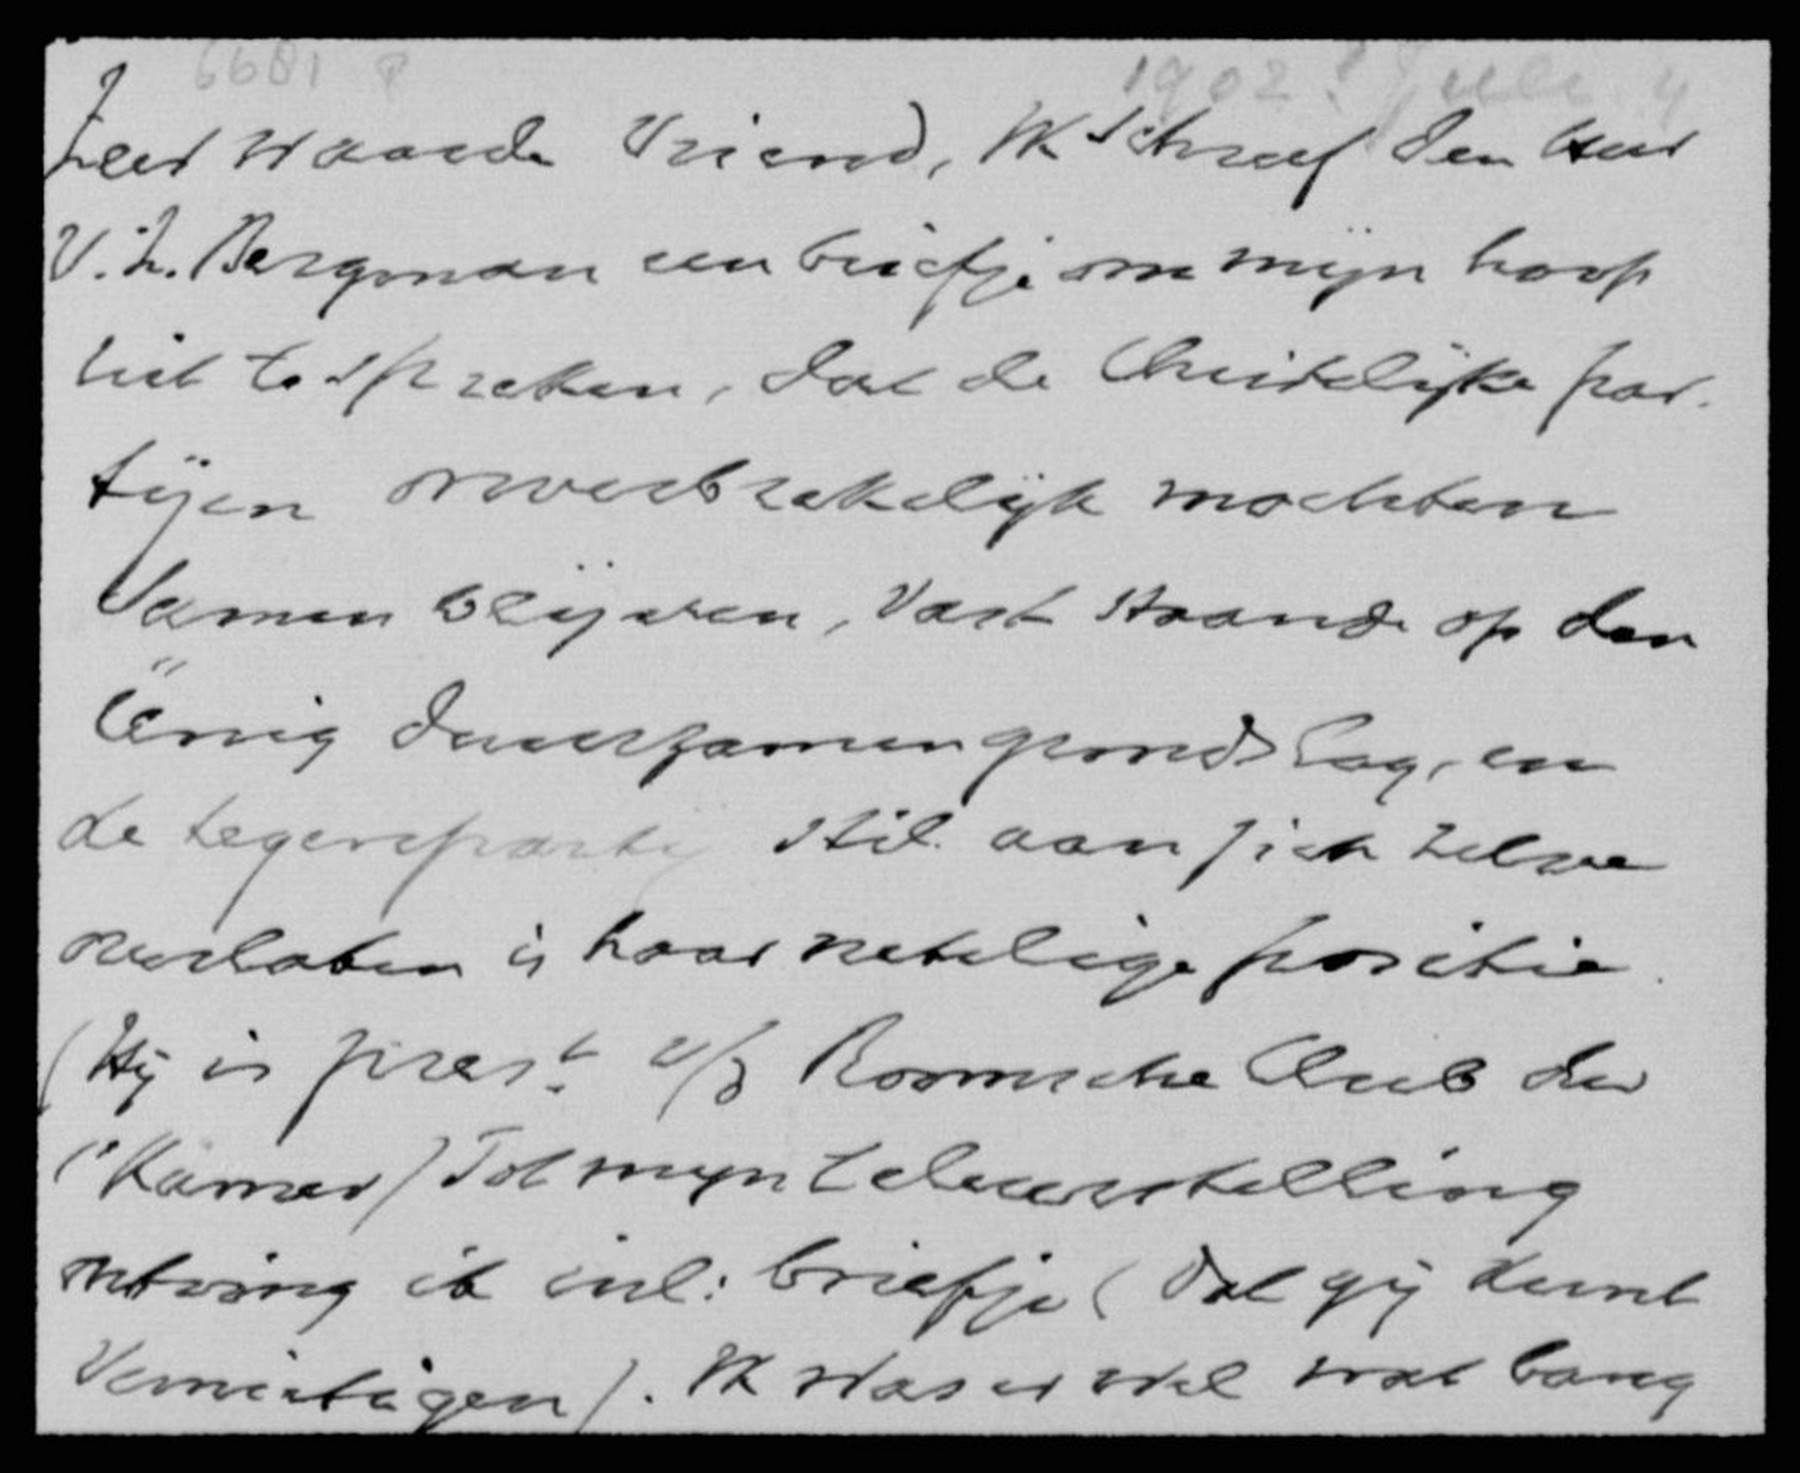 6681 P
1902? Juli 4
Zeer Waarde Vriend, Ik schreef den Heer
V. L. Bergman een briefje om mijn hoop
uit te spreken, dat de Christelijke par-
tijen onverbrekelijk mochten
Samen blijven, vast staande op den
Eenig duurzamen grondslag, en
de tegenpartij stil aan zich zelve
overlaten in haar netelige positie.
(Hij is prest. v/d Roomsche Club der
Kamer) Tot mijn teleurstelling
ontving ik inl: briefje (dat gij kunt
Vernietigen). Ik was er wel wat bang